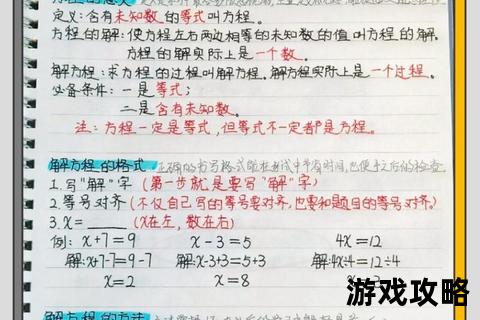 方程的意义
定义:含有未知数的等式叫方程。
方程的解:使方程左右两边相等的未知数的值叫方程的解。
方程的解实际上是一个数。
解方程:求方程的过程叫解方程。解方程实际上是一个过程。
必备条件:一是等式;
二是含有未知数。
注:方程一定是等式,但等式不一定都是方程。
解方程的格式
1.写“解”字(第一步就是要写“解”字)
2.等号对齐(不仅自己写的等号要对齐,也要和题目的等号对齐)
3.x=______(x在左,数在右)
例: x+7=9 x-3=5 4x=12
解:x+7-7=9-7 解:x-3+3=5+3 解:4x÷4=12÷4
x=2 x=8
解方程的方法
游戏攻略